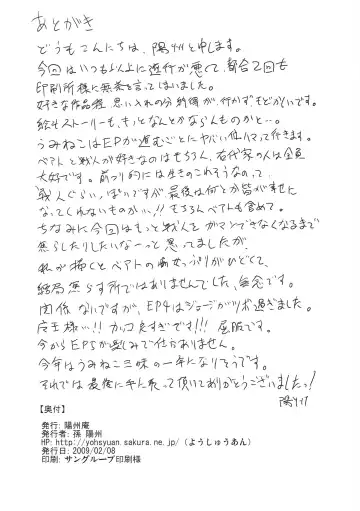 あとがき
どうもこんにちは、陽州と申します。
今回はいつも以上に進行が悪くて、都合2回も
印刷所様に無茶を言ってしまいました。
好きな作品程、思い入れの分 納得が行かずもどかしいです。
絵もストーリーも、もっとなんとかならんものかと…。
うみねこはEPが進むごとにヤバい位ハマって行きます。
ベアトと戦人が好きなのはもちろん、右代宮の人は全員
大好です。前つ的には生きのこれそうなのって、
戦人ぐらいっぽいですが、最後は何とか皆が幸せに
なってくれないものかい!! もちろんベアトも含めて。
ちなみに今回はもっと戦人を ガマンできなくなるまで
焦らしたりしたいなーっと 思ってましたが、
私が描くとベアトの
結局 焦らす所ではありませんでした、無念です。
関係 ないですが、EP4はジョージがツボ過ぎました。
カッコ良すぎです!!! 屈服です。
今からEP5が楽しみで仕方ありません。
今年はうみねこ三昧の一年になりそうです。
それでは最後に手に取って頂いてありがとうございましたっ!
陽州
【奥付】
発行: 陽州庵
発行者: 孫 陽州
HP: http://yohsyuan.sakura.ne.jp/ (ようしゅうあん)
発行日: 2009/02/08
印刷: サングループ印刷様